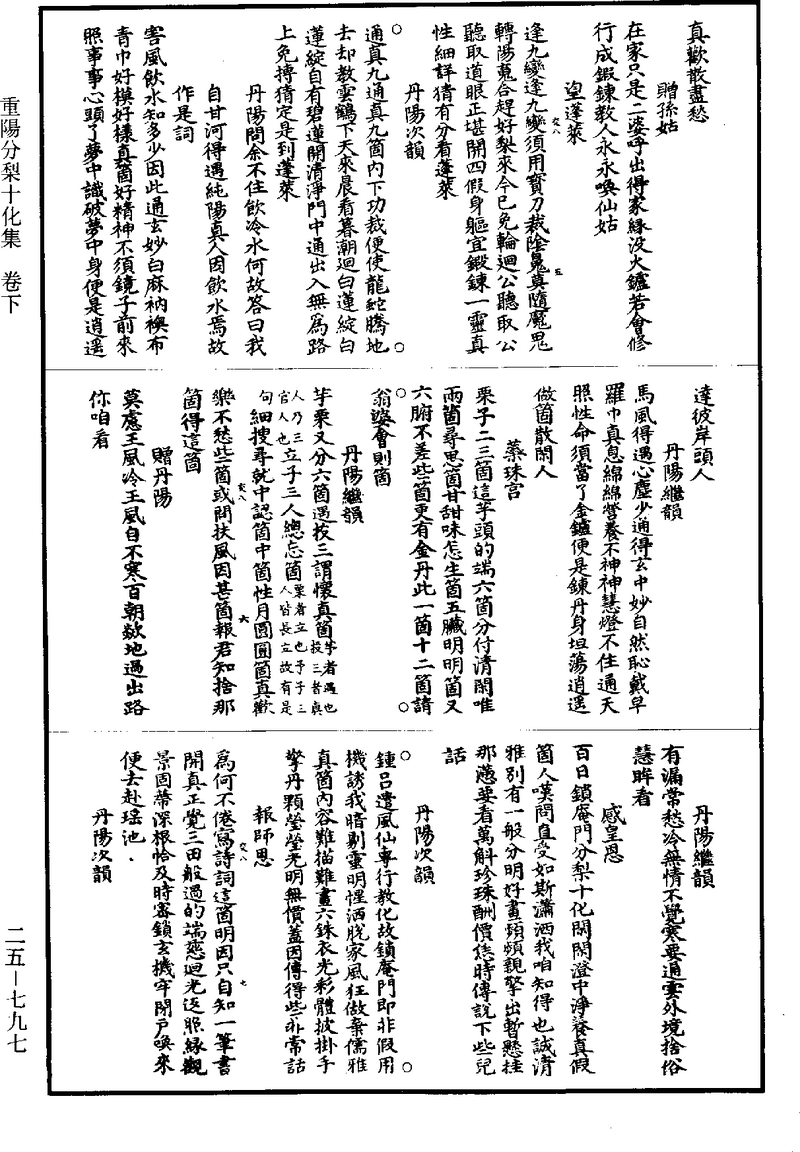 真歡散盡愁
贈孫姑
在家只是二婆呼出得家緣没火鑪若會修
行成鍛鍊教人永永喚仙姑
望蓬萊
逢九變逢九變須用寶刀裁陰鬼真隨魔鬼
轉陽䰟合趕好梨來今已免輪迴公聽取公
聽取道眼正堪開四假身軀宜鍛鍊一靈真
性細詳猜有分看蓬萊
丹陽次韻
通真九通真九箇内下功裁便使龍蛇騰地
去却教雲鶴下天來晨看暮潮迴白蓮綻白
蓮綻自有碧蓮開清淨門中通出入無爲路
上免摶猜定是到蓬萊
丹陽問余不住飲冷水何故答曰我
自甘河得遇純陽真人因飲水焉故
作是詞
害風飲水知多少因此通玄妙白麻衲襖布
青巾好模好樣真箇好精神不須鏡子前來
照事事心頭了夢中識破夢中身便是逍遥
達彼岸頭人
丹陽繼韻
馬風得遇心塵少通得玄中妙自然恥戴皁
羅巾真息綿綿營養不神神慧燈不住通天
照性命須當了金鑪便是鍊丹身坦蕩逍遥
做箇散閑人
蘂珠宫
栗子二三箇這芋頭的端六箇分付清閑唯
兩箇尋思箇甘甜味怎生箇五臟明明箇又
六腑不差些箇更有金丹此一箇十二箇請
翁婆會則箇
丹陽繼韻
芋栗又分六箇遇投三謂懷真箇芋者遇也投三者真
人乃三官人也立子三人總忘箇栗者立也予子三人皆長立故有是
句細搜尋就中認箇中箇性月圓圓箇真歡
樂不愁些箇或問扶風因甚箇報君知捨那
箇得這箇
贈丹陽
莫慮王風冷王風自不寒百朝欻地過出路
你咱看
丹陽繼韻
有漏常愁冷無情不覺寒要通雲外境捨俗
慧眸看
感皇恩
百日鎖庵門分梨十化閑閑澄中淨養真假
箇人嘆問直受如斯瀟洒我咱知得也誠清
雅别有一般分明好畫頻頻親擎出暫懸挂
那懣要看萬斛珍珠酬價恁時傳說下些兒
話
丹陽次韻
鍾吕遣風仙專行教化故鎖庵門即非假用
機誘我暗剔靈明惺洒脱家風狂做棄儒雅
真箇内容難描難畫六銖衣光彩體披掛手
擎丹顆瑩瑩光明無價蓋因傳得些非常話
報師恩
爲何不倦寫詩詞這箇明因只自知一筆書
開真正覺三田般過的端慈迴光返照緣觀
景固蒂深根恰及時審鎖玄機牢閉户喚來
便去赴瑶池
丹陽次韻
重陽分梨十化集 卷下
二五—七九七